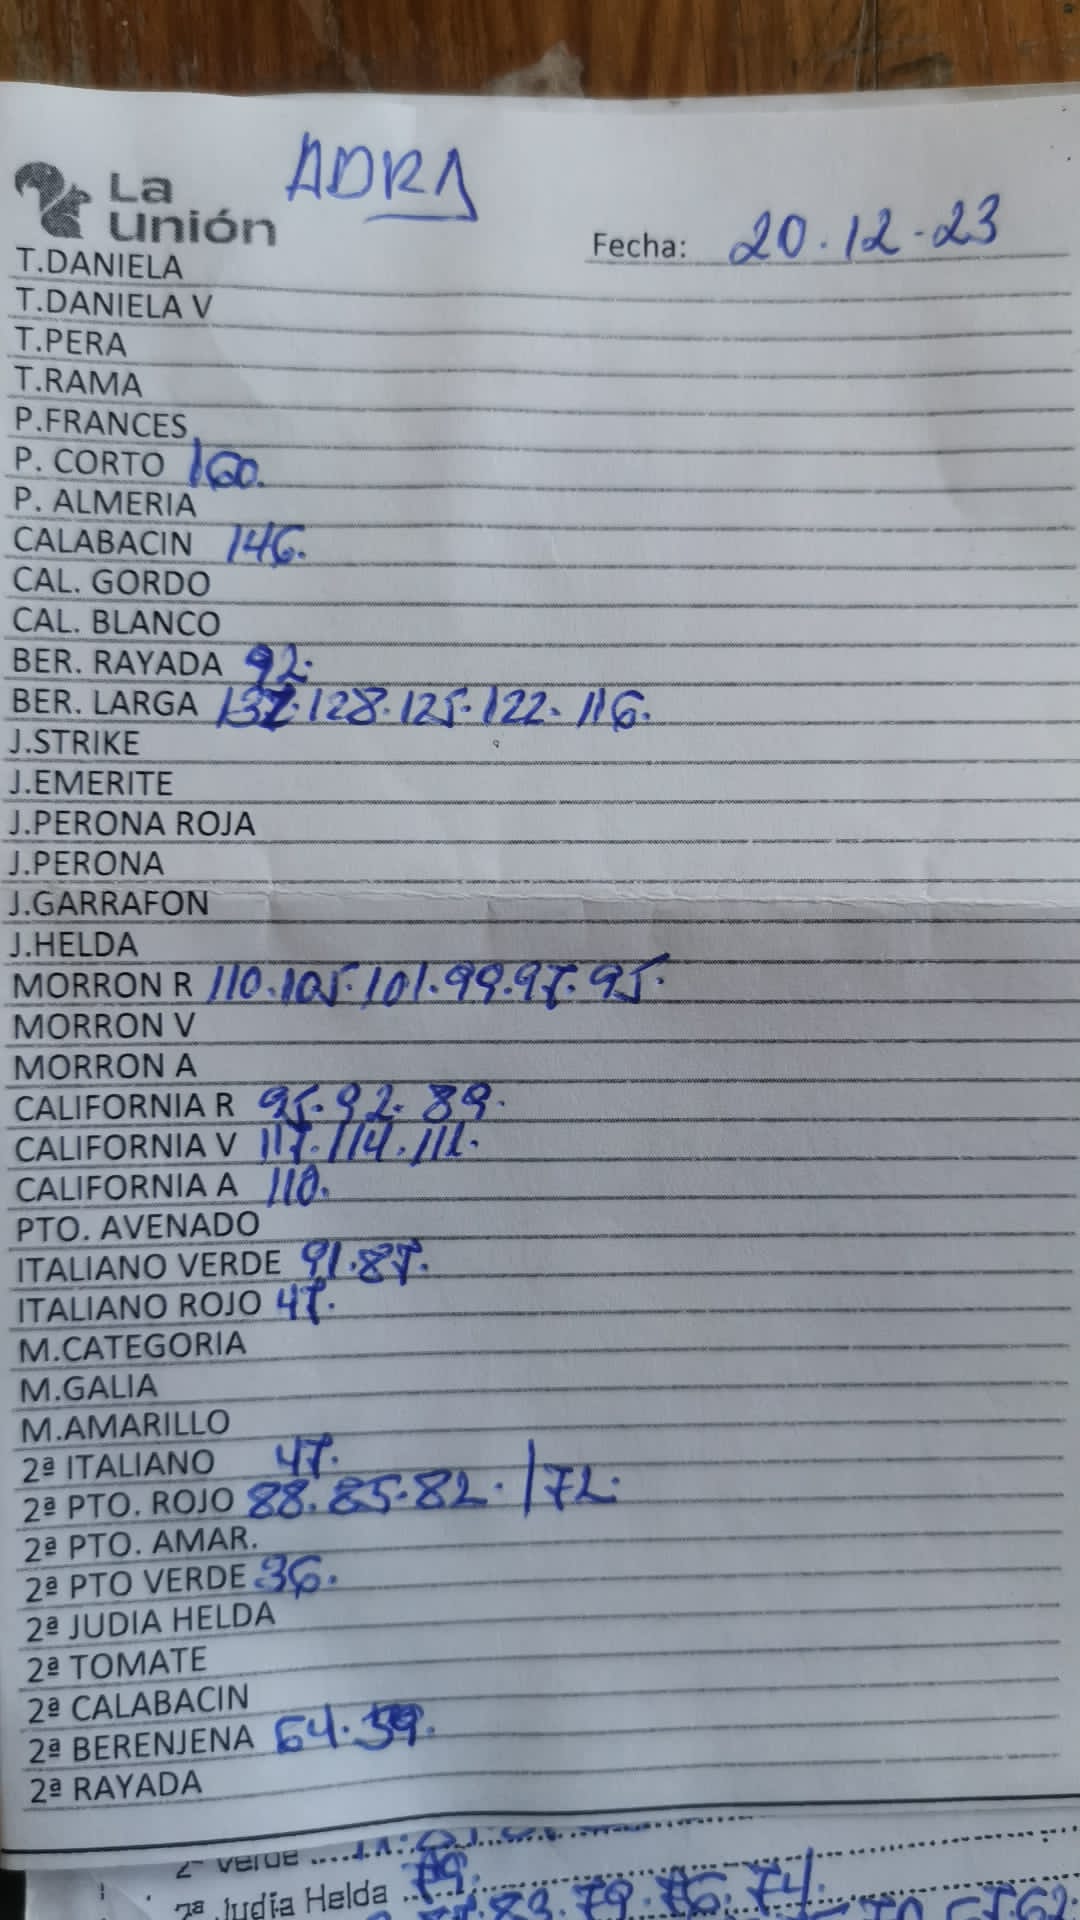 ADRA
La
Unión
Fecha: 20.12.23
T.DANIELA
T.DANIELA V
T.PERA
T.RAMA
P.FRANCES
P. CORTO 160.
P. ALMERIA
CALABACIN 146.
CAL. GORDO
CAL. BLANCO
BER. RAYADA 92.
BER. LARGA 132.128.125.122.116.
J.STRIKE
J.EMERITE
J.PERONA ROJA
J.PERONA
J.GARRAFON
J.HELDA
MORRON R 110.105.101.99.97.95.
MORRON V
MORRON A
CALIFORNIA R 95.92.89.
CALIFORNIA V 117.114.111.
CALIFORNIA A 110.
PTO. AVENADO
ITALIANO VERDE 91.87.
ITALIANO ROJO 47.
M.CATEGORIA
M.GALIA
M.AMARILLO
2ª ITALIANO 47.
2ª PTO. ROJO 88.85.82. /72.
2ª PTO. AMAR.
2ª PTO VERDE 36.
2ª JUDIA HELDA
2ª TOMATE
2ª CALABACIN
2ª BERENJENA 64.59.
2ª RAYADA
2ª Verde
2ª Judía Helda 79.
83.79.76.74.